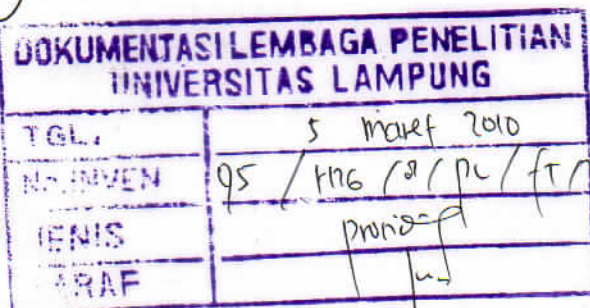 DOKUMENTASI LEMBAGA PENELITIAN
UNIVERSITAS LAMPUNG
TGL. 5 Maret 2010
NO. INVEN 95 /
JENIS
PARAF